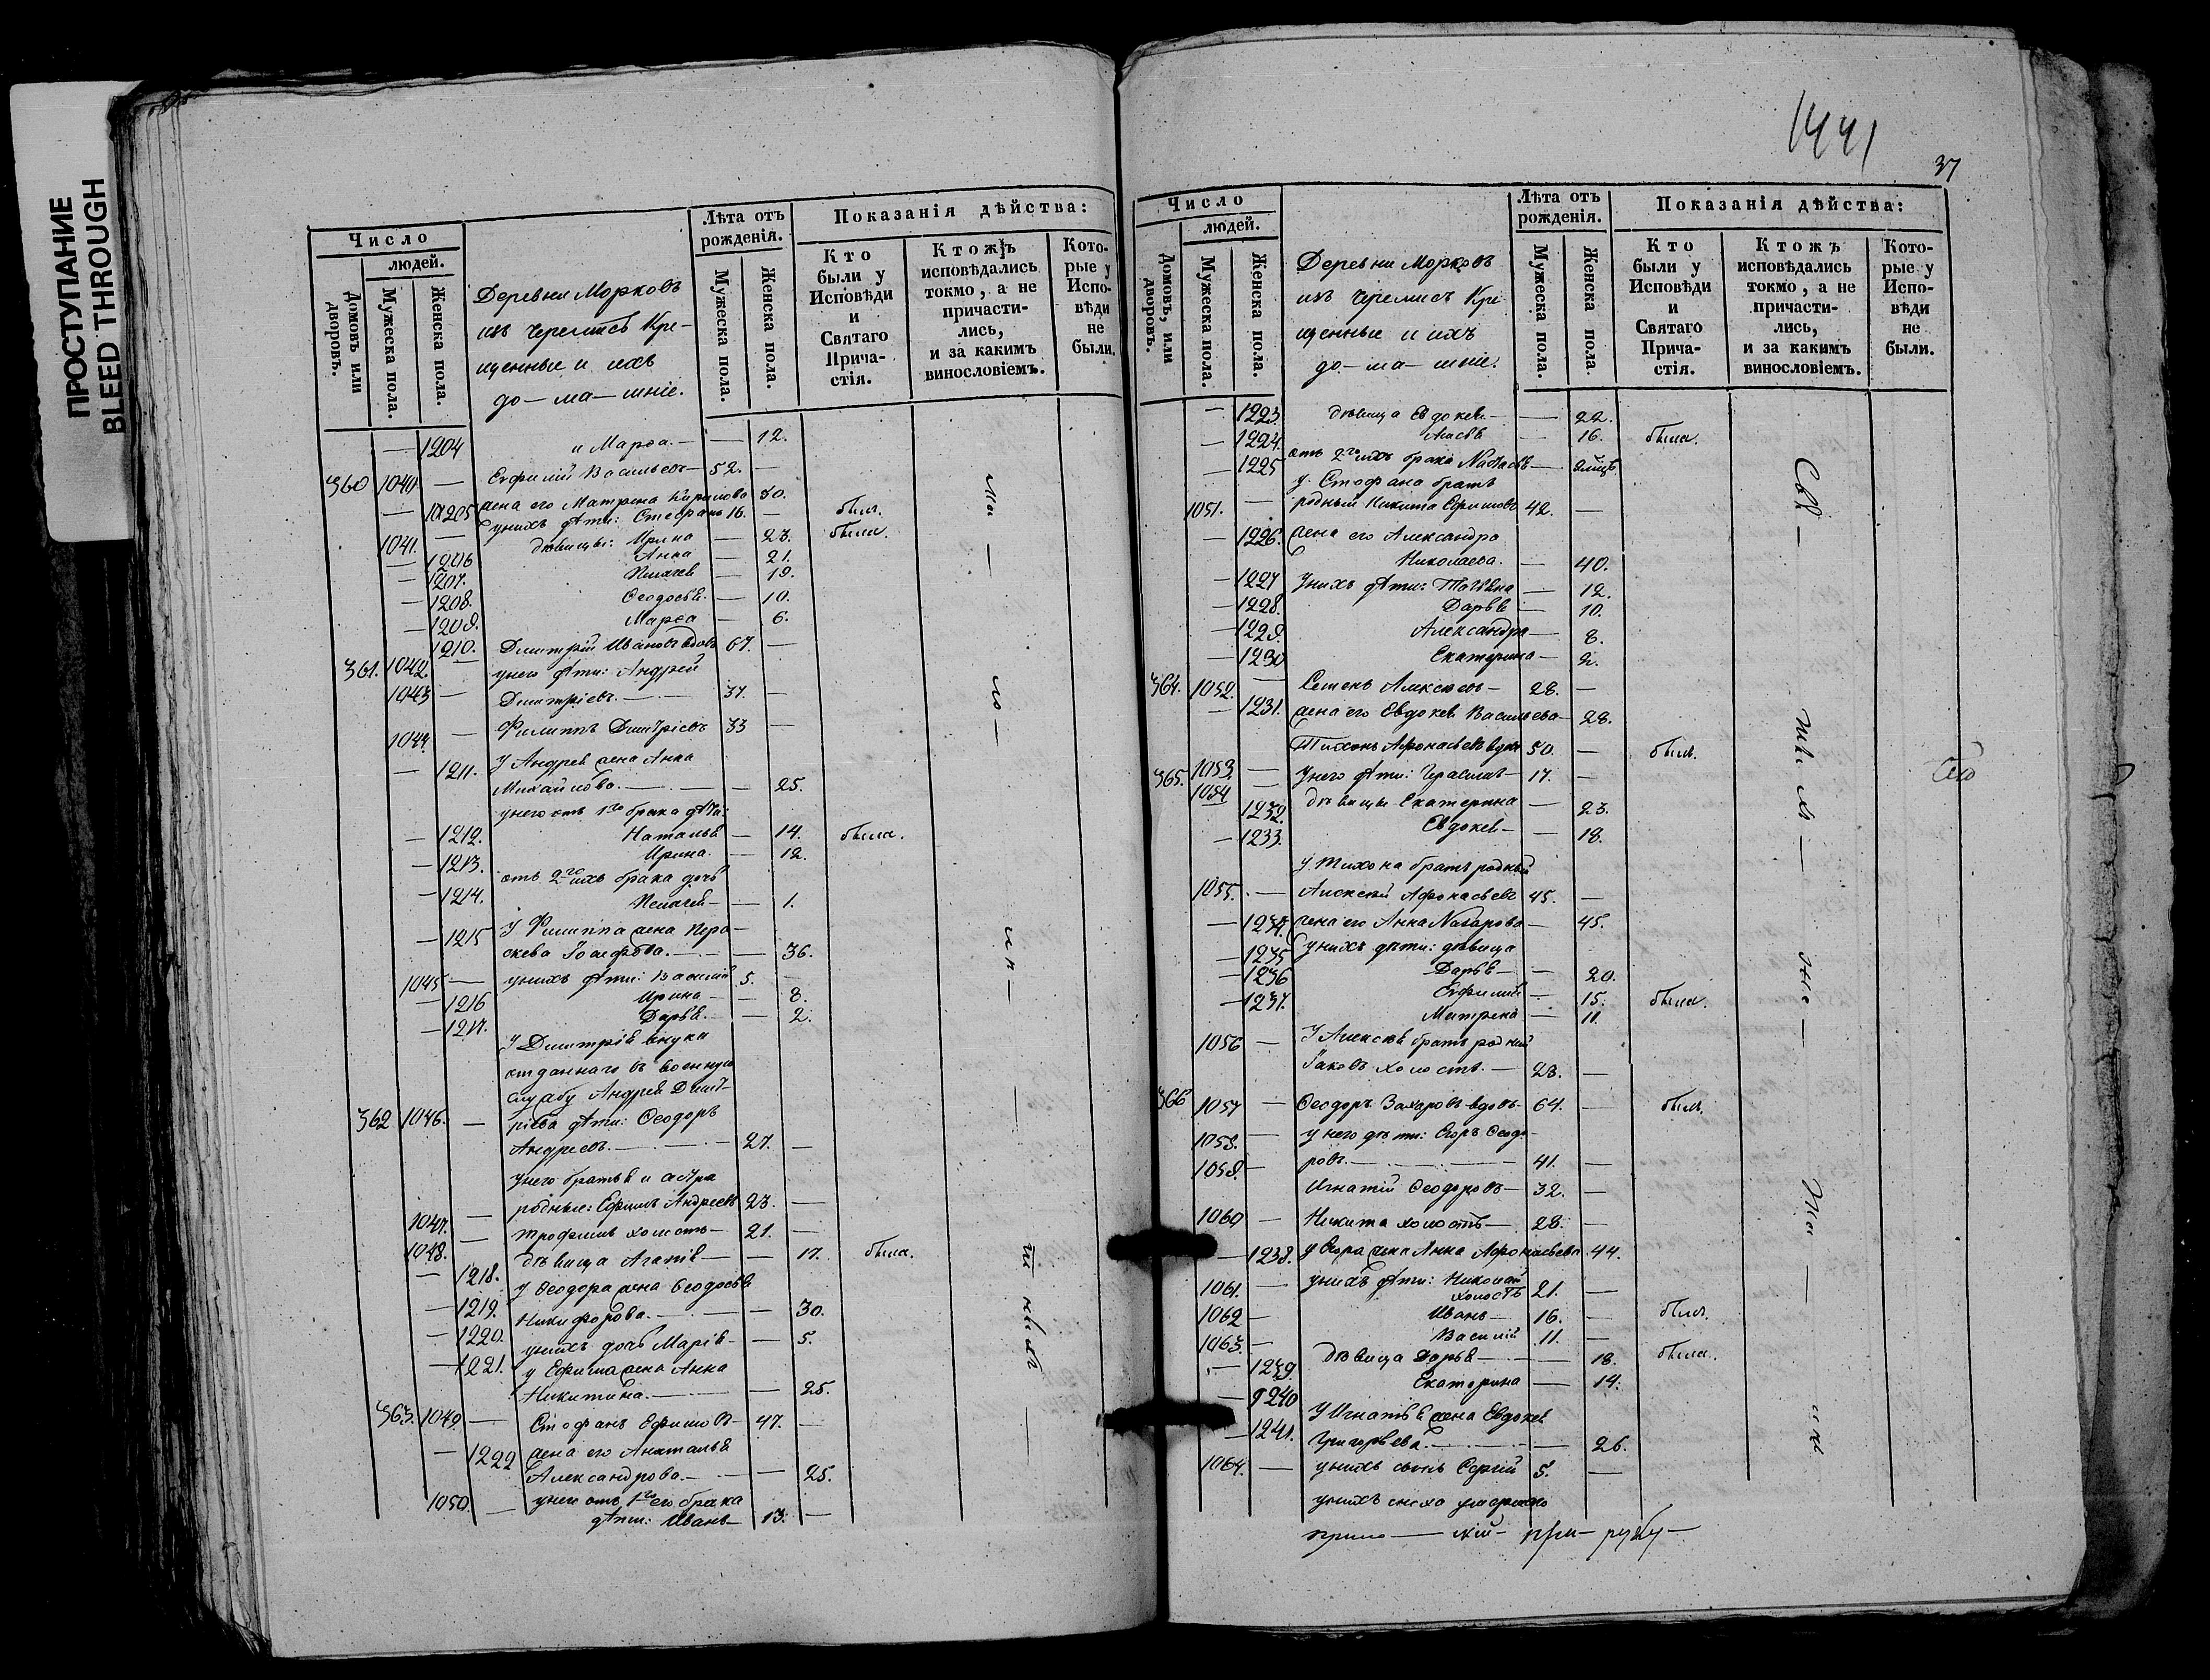 ПРОСТУПАНИЕ
BLEED THROUGH
Число
людей.
Домовъ или дворовъ.
Мужеска пола.
Женска пола.
Деревни Морковъ
изъ черемисъ Кре-
щенные и ихъ
до-ма-шніе.
Лѣта отъ рожденія.
Мужеска пола.
Женска пола.
Показанія дѣйства:
Кто были у Исповѣди и Святаго Прича-стія.
Ктожъ исповѣдались токмо, а не причасти-лись, и за какимъ винословіемъ.
Кото-рые у Испо-вѣди не были.
— 1204 и Марѳа. — — 12.
360 1040 — Евфимій Васильевъ — 52. —
— 1205 жена его Матрена Кирилова 50.
1041. — у нихъ дѣти: Стефанъ 16. — былъ.
— 1206 дѣвицы: Ирина — 23. была.
— 1207. Анна — 21.
— 1208. Пелагея — 19.
— 1209. Ѳеодосья — 10.
— 1210. Марѳа — 6.
361. 1042. — Димитрій Ивановъ вдовъ 67. —
у него дѣти: Андрей
1043 — Димитріевъ. — 37. —
1044. — Филиппъ Димитріевъ 33 —
— 1211. У Андрея жена Анна
Михайлова. — — 25.
у него отъ 1го брака дѣти:
— 1212. Наталья — 14. была.
— 1213. Ирина. — 12.
отъ 2го ихъ брака дочь
— 1214. Пелагея — — 1.
— 1215 У Филиппа жена Пара-
скева — 36.
1045 — у нихъ дѣти: Василій 5. —
— 1216 Ирина — — 8.
— 1217. Дарья. — — 2.
У Димитрія внука
отданнаго въ военную
службу Андрея Димит-
362 1046. — ріева дѣти: Ѳеодоръ
Андреевъ. — 27. —
У него братья и сестра
родные: Ефимъ Андреевъ 23. —
1047. — Трофимъ холостъ — 21. —
1048. — дѣвица Агапія — — 17. была.
— 1218. у Ѳеодора жена Ѳеодосья
— 1219. Никифорова. — — 30.
— 1220. у нихъ дочь Марія — — 5.
— 1221. у Ефима жена Анна
Никитина. — — 25.
363. 1049. — Стефанъ Ефимовъ — 47. —
— 1222 жена его Анаталья
Александрова. — — 25.
1050. — у него отъ 1го его брака
дѣти: Иванъ — 13. —
ма — ло — лѣ —
1441
37
Число
людей.
Домовъ, или дворовъ.
Мужеска пола.
Женска пола.
Деревни Морковъ
изъ черемисъ Кре-
щенные и ихъ
до-ма-шніе.
Лѣта отъ рожденія.
Мужеска пола.
Женска пола
Показанія дѣйства:
Кто были у Исповѣди и Святаго Прича-стія.
Ктожъ исповѣдались токмо, а не причасти-лись, и за какимъ винословіемъ.
Кото-рые у Испо-вѣди не были.
— 1223. дѣвица Евдокея — — 22.
— 1224. — 16. была.
— 1225 отъ 2го ихъ брака —
у Стефана братъ
1051. — родный Никита Ефимовъ 42. —
— 1226. жена его Александра
Николаева. — 40.
— 1227 У нихъ дѣти: Татьяна — 12.
— 1228. Дарья — 10.
— 1229. Александра — 8.
— 1230 Екатерина — 2.
364. 1052. — Семенъ Алексеевъ — 28. —
— 1231. жена его Евдокея Васильева — 28.
Тихонъ Афонасьевъ вдовъ 50. — былъ.
365. 1053. — У него дѣти: Герасимъ — 17. —
1054
— 1232. дѣвицы Екатерина — 23.
— 1233. Евдокея — — 18.
у Тихона братъ родный
1055. — Алексей Афонасьевъ 45. —
— 1234. жена его Анна Назарова — 45.
— 1235 у нихъ дѣти: дѣвица
— 1236 Дарья — — 20.
— 1237. Евфимія — 15. была.
Матрена — 11.
1056 — У Алексея братъ родный
Іаковъ холостъ. — 23. —
366 1057 — Ѳеодоръ Захаровъ вдовъ — 64. — былъ.
1058. — у него дѣти: Егоръ Ѳеодо-
1059. — ровъ. — 41. —
Игнатій Ѳеодоровъ — 32. —
1060 — Никита холостъ — 28. —
— 1238. У Егора жена Анна Афонасьева 44.
1061. — у нихъ дѣти: Николай
холостъ 21. —
1062 — Иванъ — 16. — былъ.
1063. — Василій 11. —
— 1239 дѣвица Дарья — — 18. была.
— 1240 Екатерина — 14.
У Игнатія жена Евдокея
— 1241. Григорьева. — — 26.
1064. — у нихъ сынъ Сергій 5. —
у нихъ сноха умершаго